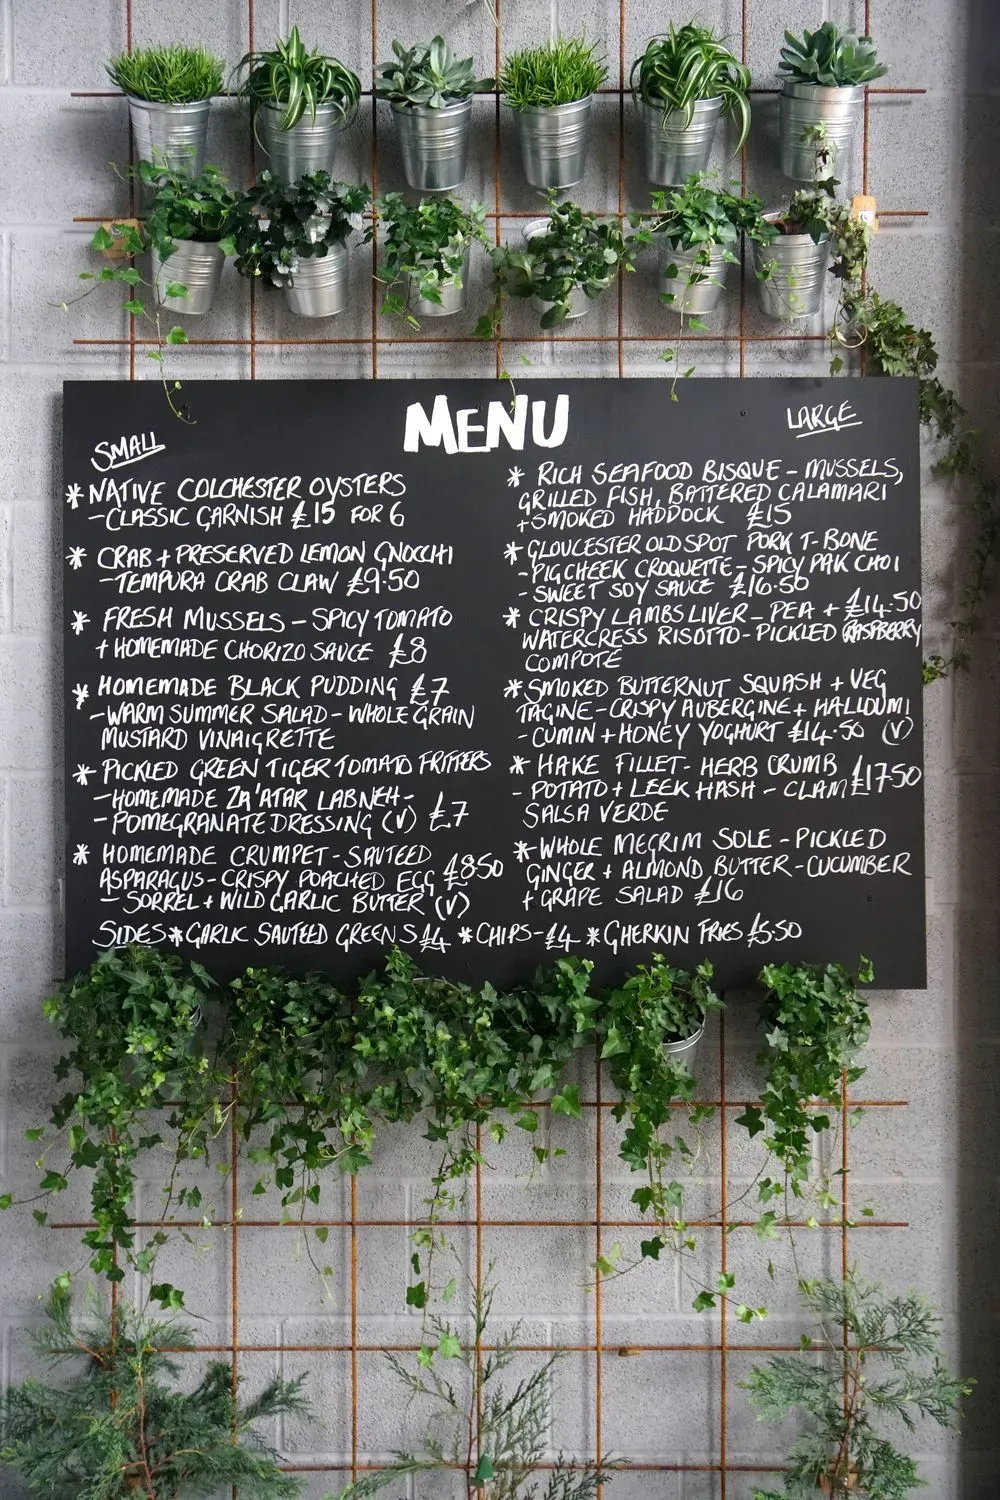 MENU
SMALL
* NATIVE COLCHESTER OYSTERS
- CLASSIC GARNISH £15 FOR 6
* CRAB + PRESERVED LEMON GNOCCHI
- TEMPURA CRAB CLAW £9.50
* FRESH MUSSELS - SPICY TOMATO
+ HOMEMADE CHORIZO SAUCE £8
* HOMEMADE BLACK PUDDING £7
- WARM SUMMER SALAD - WHOLEGRAIN
MUSTARD VINAIGRETTE
* PICKLED GREEN TIGER TOMATO FRITTERS
- HOMEMADE ZA'ATAR LABNEH -
- POMEGRANATE DRESSING (V) £7
* HOMEMADE CRUMPET - SAUTEED
ASPARAGUS - CRISPY POACHED EGG £8.50
- SORREL + WILD GARLIC BUTTER (V)
LARGE
* RICH SEAFOOD BISQUE - MUSSELS,
GRILLED FISH, BATTERED CALAMARI
+ SMOKED HADDOCK £15
* GLOUCESTER OLD SPOT PORK T-BONE
- PIG CHEEK CROQUETTE - SPICY PAK CHOI
- SWEET SOY SAUCE £16.50
* CRISPY LAMBS LIVER - PEA + £14.50
WATERCRESS RISOTTO - PICKLED RASPBERRY
COMPOTE
* SMOKED BUTTERNUT SQUASH + VEG
TAGINE - CRISPY AUBERGINE + HALLOUMI
- CUMIN + HONEY YOGHURT £14.50 (V)
* HAKE FILLET - HERB CRUMB £17.50
- POTATO + LEEK HASH - CLAM
SALSA VERDE
* WHOLE MEGRIM SOLE - PICKLED
GINGER + ALMOND BUTTER - CUCUMBER
+ GRAPE SALAD £16
SIDES * GARLIC SAUTEED GREENS £4 * CHIPS - £4 * GHERKIN FRIES £5.50